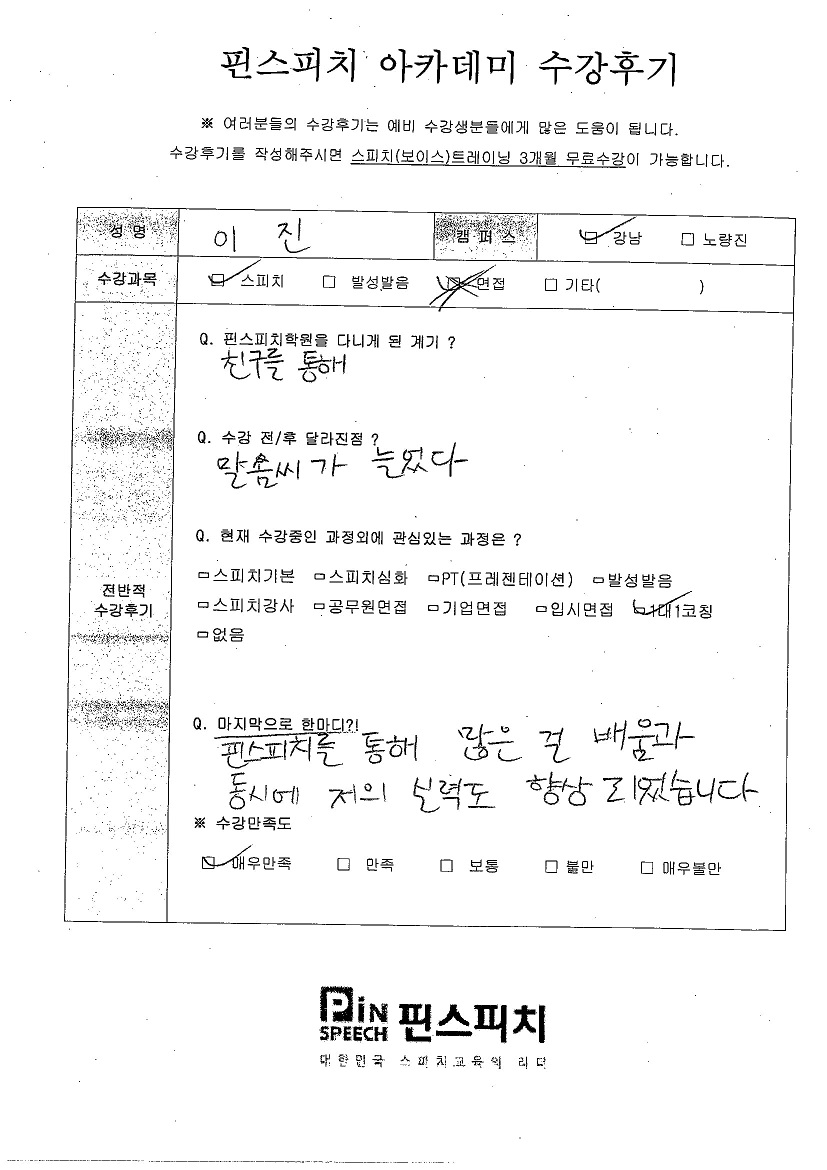 핀스피치 아카데미 수강후기
※ 여러분들의 수강후기는 예비 수강생분들에게 많은 도움이 됩니다.
수강후기를 작성해주시면 스피치(보이스)트레이닝 3개월 무료수강이 가능합니다.
성 명 이 진 캠 퍼 스 ☑ 강남 □ 노량진
수강과목 ☑ 스피치 □ 발성발음 □ 면접 □ 기타( )
전반적 수강후기
Q. 핀스피치학원을 다니게 된 계기 ?
친구를 통해
Q. 수강 전/후 달라진점 ?
말솜씨가 늘었다
Q. 현재 수강중인 과정외에 관심있는 과정은 ?
□스피치기본 □스피치심화 □PT(프레젠테이션) □발성발음
□스피치강사 □공무원면접 □기업면접 □입시면접 ☑1대1코칭
□없음
Q. 마지막으로 한마디?!
핀스피치를 통해 많은 걸 배움과
동시에 저의 실력도 향상 되었습니다
※ 수강만족도
☑ 매우만족 □ 만족 □ 보통 □ 불만 □ 매우불만
PiN SPEECH 핀스피치
대한민국 스피치교육의 리더